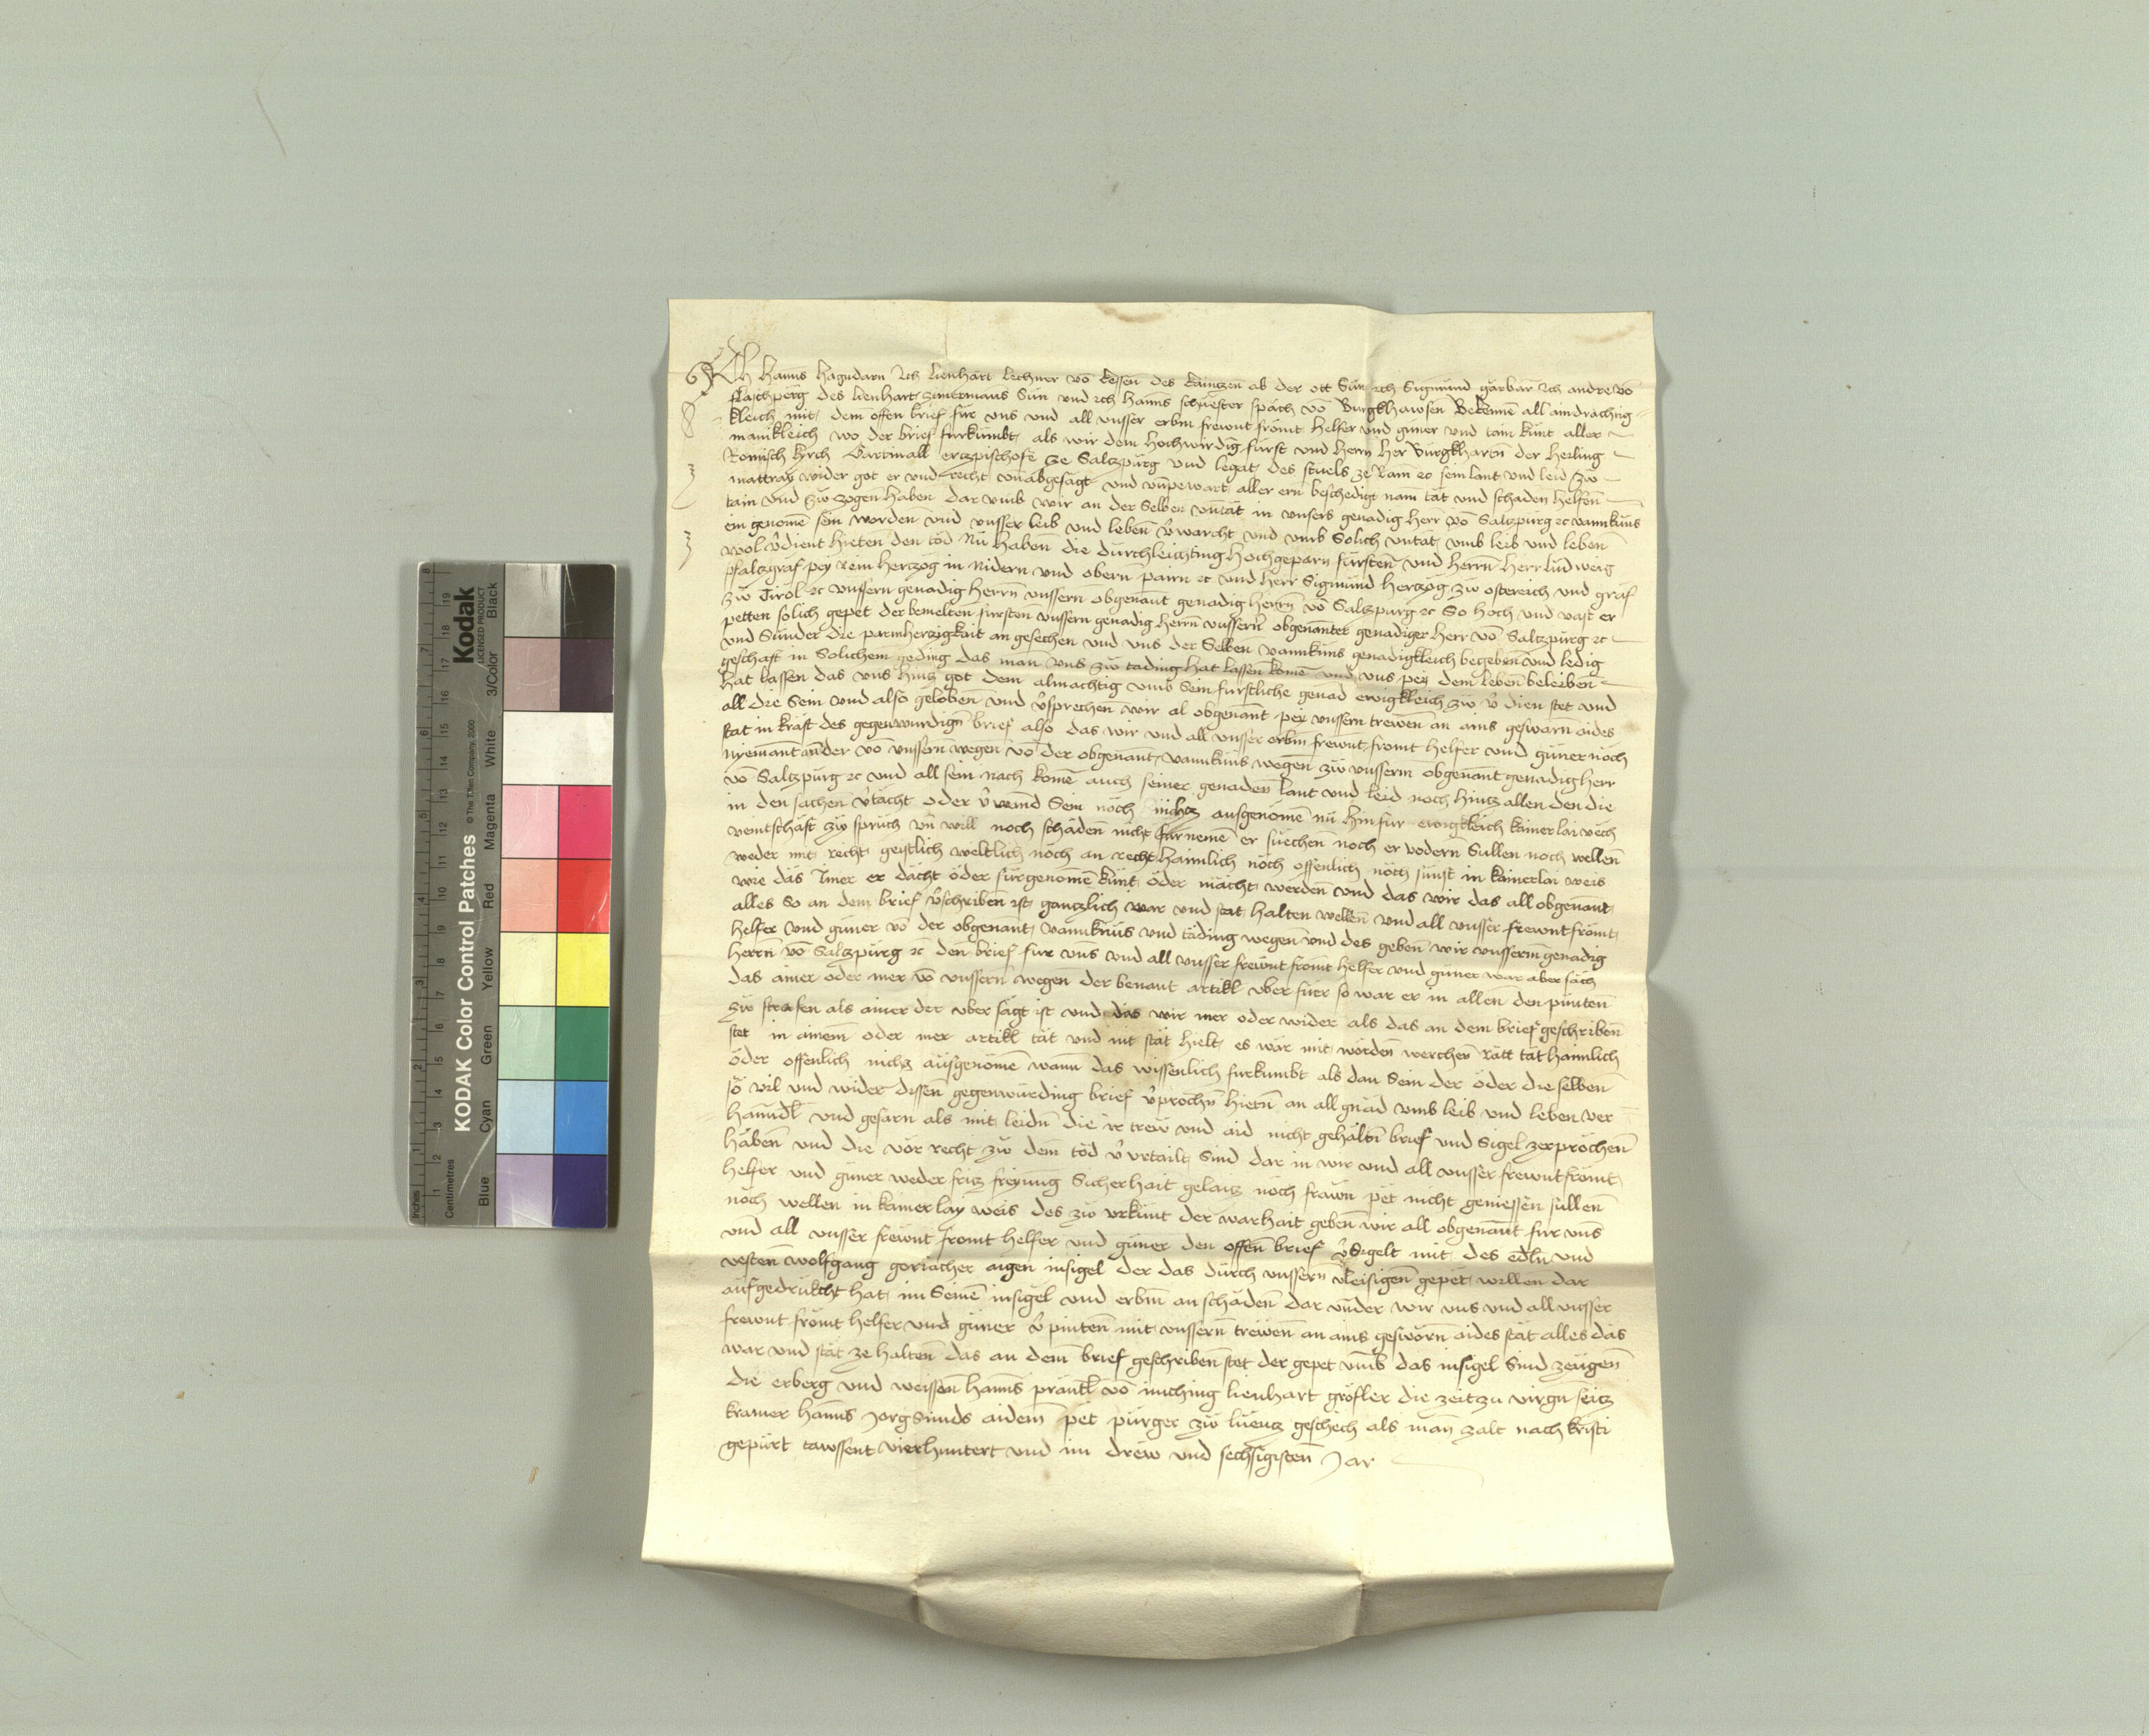 Ich Hanns Hagndarn Ich Lienhart Lechner vō kessen des kaintzen ab der ött Sun Ich Sigmund garbar Ich andre vō
flaschperg des Lienhart zimermans Sun und Ich Hanns schuester spach vō Burgkhawsen Bekennē all aindrachtig
kleich mit dem offen brief für uns und all unsser erbm frewnt frömt helfer und guner und tain kunt aller
manikleich wo der brief furkumbt als wir dem Hochwirdig fürst und Herrn Her Burgkhartn der Heiling
Romisch kyrch Cardinall ertzpischofe ze Saltzpurg und legat des stuels ze Ram ec sein lant und leid zw
mattray wider got er und recht unabgesagt und unpewart aller ern beschedigt nam tät und schaden helfen
tain und zw zogen haben dar umb wir an der Selben untät in unsers genadig herr vō Saltzpurg ec vannknus
ein genomē sein worden und unsser leib und leben v̄warcht und umb Solich untat umb leib und leben
wol v̄dient hieten den töd Nu haben die durchleichting Hochgeparn fursten und herrn Herr ludweig
pfaltzgraf pey Rein hertzog in Nidern und obern pairn ec und Herr Sigmund hertzog zw ostereich und graf
zw Tiröl ec unssern genadig herrn unssern obgenant genadig herrn vō Saltzpurg ec So hoch und vast er
petten solich gepet der bemelten fursten unssern genadig herrn unssern obgenanter genadiger Herr vō Saltzpurg ec
und Sunder die parmhertzigkait an gesechen und uns der Selben vannknus genadigkleich begeben und ledig
geschaft in Solichem geding das man uns zw tading hat lassen komē und uns pey dem leben beleiben
hat lassen das uns hintz got dem almachtig umb Sein furstliche genad ewigkleich zw v̄ dien stet und
all die Sein und also geloben und v̄sprechen wir al obgenant pey unssern trewen an ains geswarn aides
stat in kraft des gegenwurdign brief also das wir und all unsser erbm frewnt fromt helfer und guner noch
nyemant ander vō unssern wegen vō der obgenant vannknus wegen zw unsserm obgenant genadig herr
vō Saltzpurg ec und all sein nach komē auch seiner genaden lant und leid noch hintz allen den die
in den sachen v̄tacht oder v̄wand Sein noch nichtz ausgenomē nu hinfur ewigkleich kainerlai vech
veintschaft zw spruch un will noch schaden nicht furnemē er suechen noch er vodern Sullen noch wellen
weder mit recht geystlich weltlich noch an recht haimlich noch offenlich noch sunst in kainerlai weis
wie das Imer er dacht oder furgenomē kunt oder macht werden und das wir das all obgenant
alles So an dem brief v̄schriben ist gantzlich war und stat halten wellen und all unsser frewnt fromt
helfer und guner vō der obgenant vannknus und tading wegen und des geben wir unsserm genadig
herrn vō Saltzpurg ec den brief fur uns und all unsser frewnt fromt helfer und guner war aber sach
das ainer oder mer vō unssern wegen der benant artikl uber fuer so war er in allen den punten
zw strafen als ainer der uber sagt ist und das wir mer oder wider als das an dem brief geschriben
stet in ainem oder mer artikl tät und nit stät hielt es wär mit worden werchen rätt tät haimlich
oder offenlich nichtz ausgenomē wann das wissenlich furkumbt als dan Sein der oder die selben
so vil und wider dissen gegenwurding brief v̄prochn hietn an all gnad umb leib und leben ver
hanndl und gefarn als mit leidn die Ir trew und aid nicht gehaltn brief und Sigel zerprochen
haben und die vor recht zw dem töd v̄urtailt Sind dar in wir und all unsser frewnt fromt
helfer und guner weder fritz freyung Sicherhait gelaitz noch frawn pet nicht geniessen sullen
noch wellen in kainerlay weis des zw urkunt der warhait geben wir all obgenant fur uns
und all unsser frewnt fromt helfer und guner den offen brief v̄Sigelt mit des edln und
vesten wolfgang goriacher aigen insigel der das durch unssern vleisigen gepet willen dar
aufgedrukcht hat im Seinē insigel und erbm an schaden dar under wir uns und all unsser
frewnt fromt helfer und guner v̄pinten mit unssern trewen an ains gesworn aides stät alles das
war und stät ze halten das an dem brief geschriben stet der gepet umb das insigel Sind zeugen
die erberg und weissen hanns präntl vō inching lienhart gröfler die zeit zu virgn seitz
kramer hanns Jorg Sunds aidem pet purger zw luentz geschech als man zalt nach kristi
gepurt tawssent vierhuntert und im drew und sechsigisten Jar
KODAK Color Control Patches
Kodak
LICENSED PRODUCT
© The Tiffen Company, 2000
Inches
Centimetres
Blue
Cyan
Green
Yellow
Red
Magenta
White
3/Color
Black